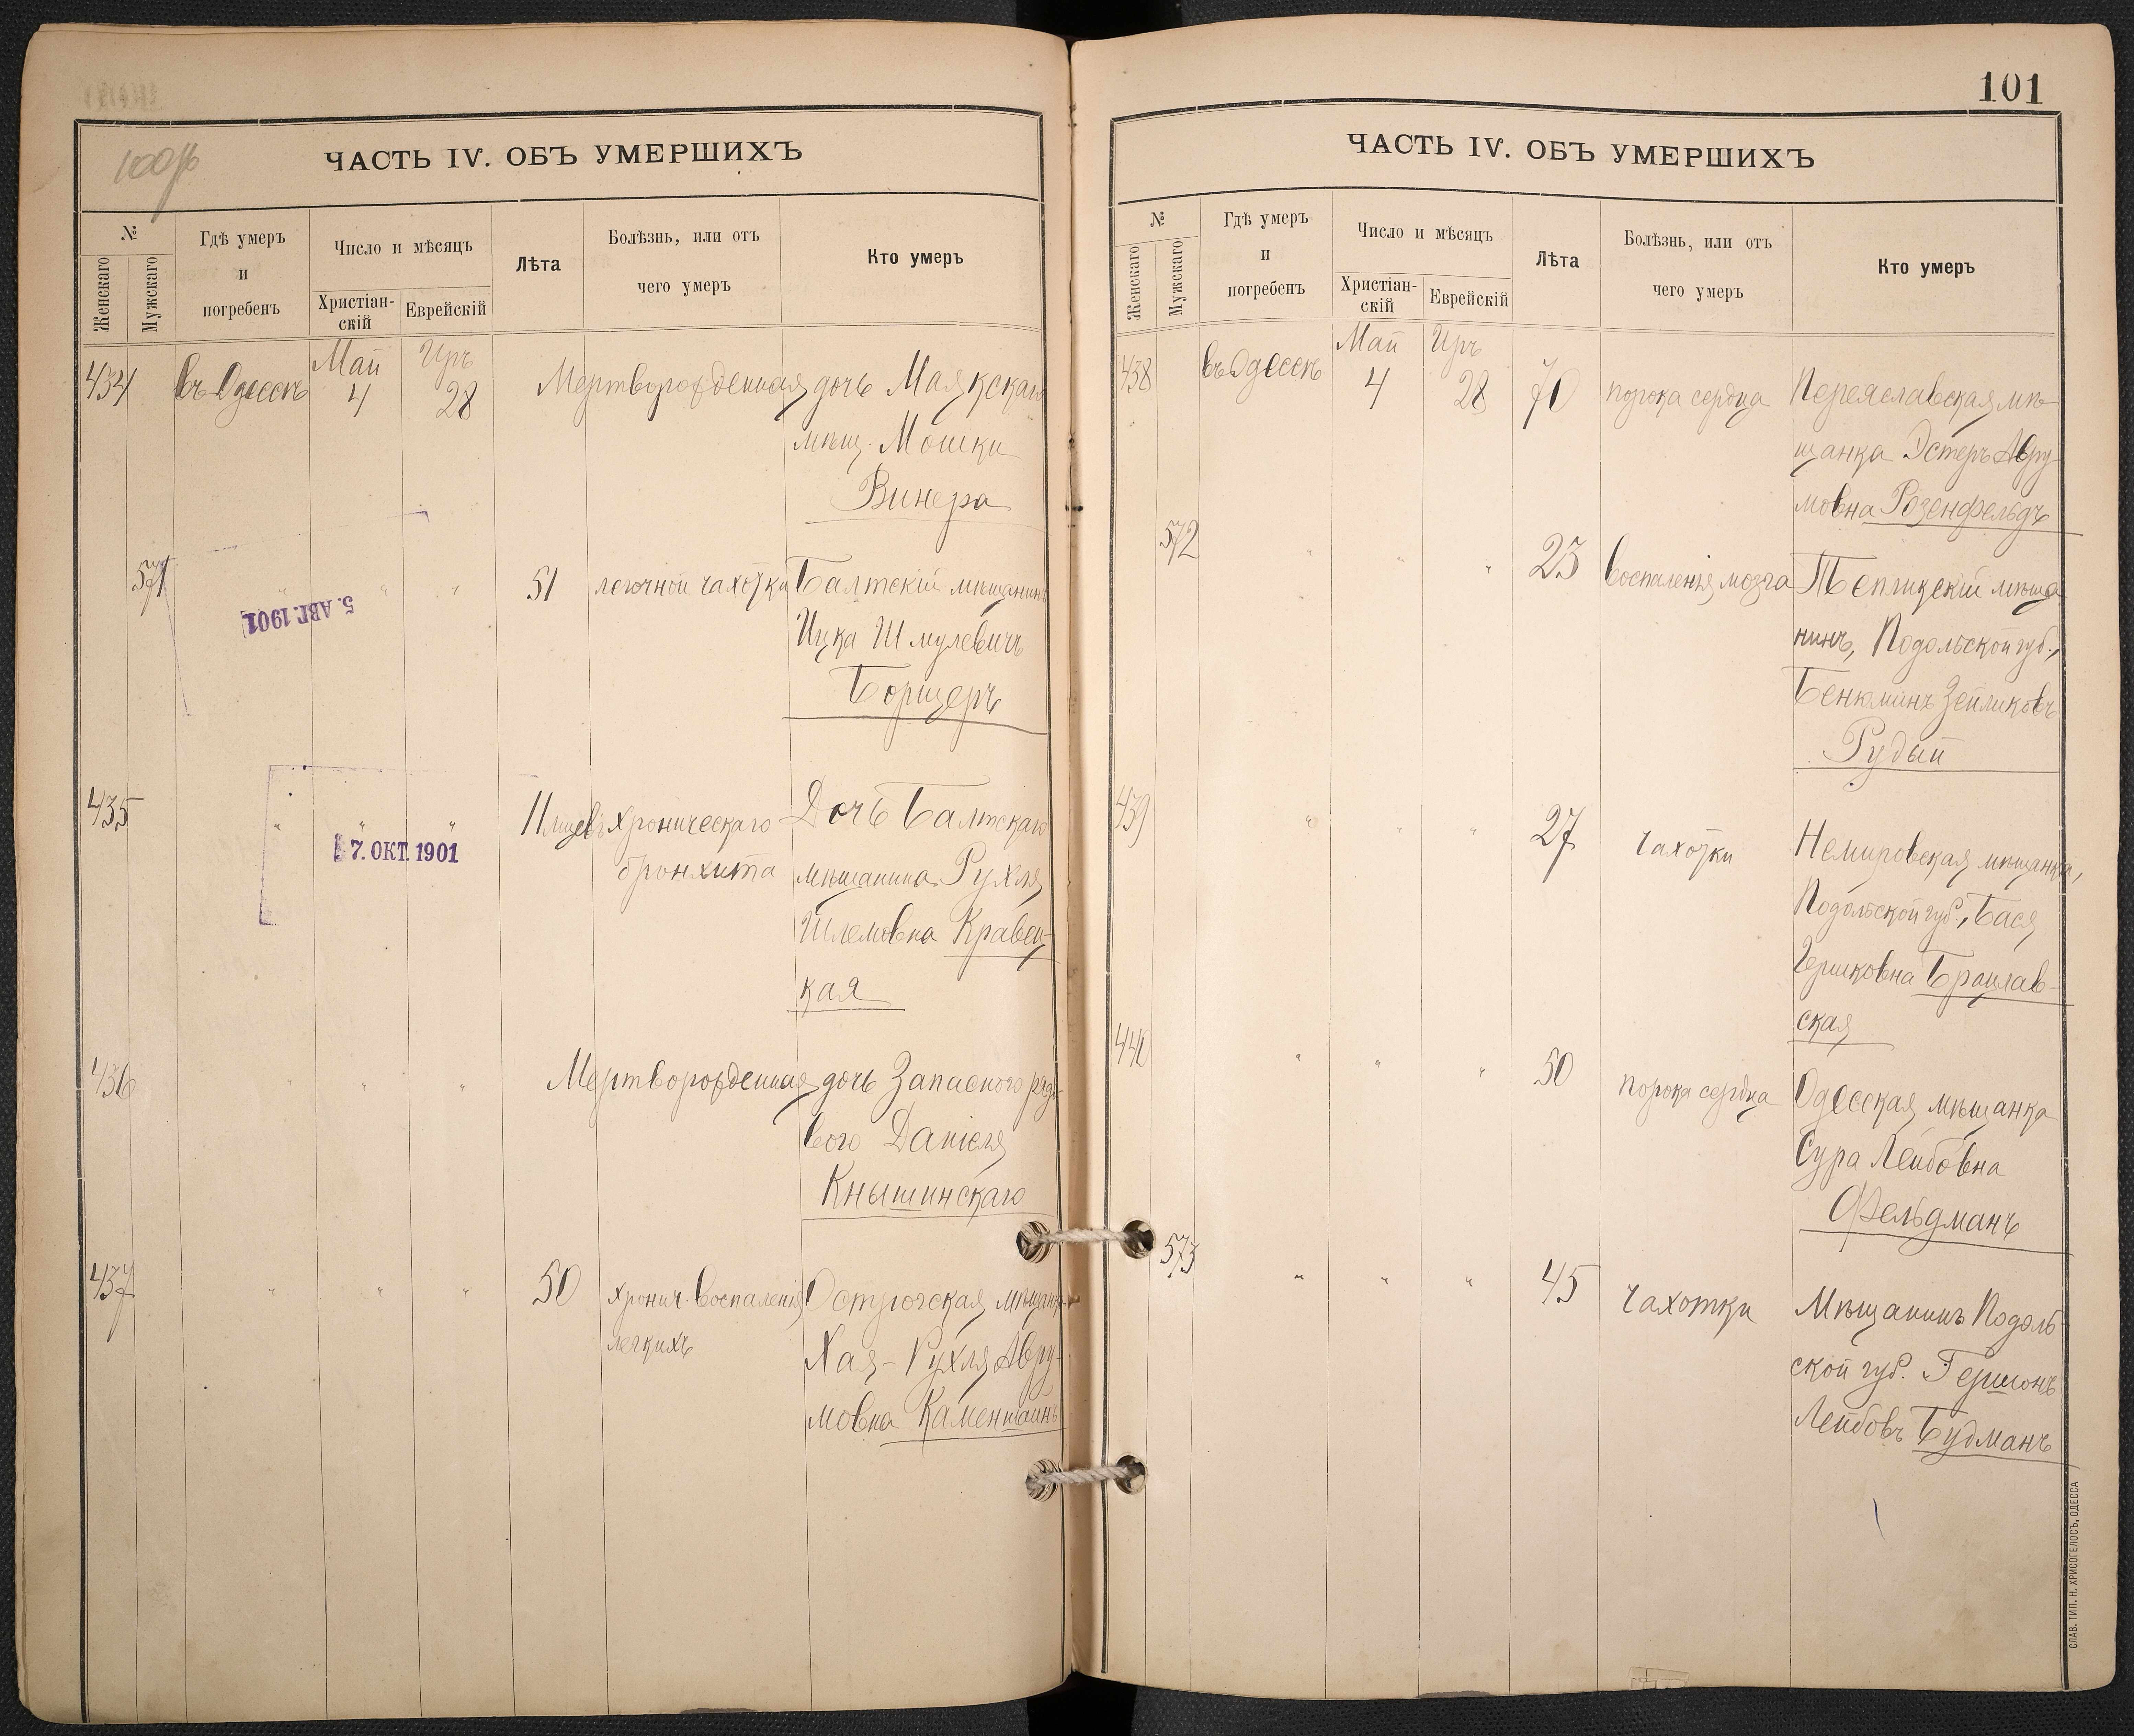 100
ЧАСТЬ IV. ОБЪ УМЕРШИХЪ
№
Женскаго
Мужскаго
Гдѣ умеръ
и
погребенъ
Число и мѣсяцъ
Христіан-
скій
Еврейскій
Лѣта
Болѣзнь, или отъ
чего умеръ
Кто умеръ
Май Иръ
434 въ Одессѣ 4 28 Мертворожденная дочь Маякскаго
мѣщ. Мошки
Винера
571 " " " 51 легочной чахотки Балтскій мѣщанинъ
5. АВГ. 1901
Ицка Шмулевичъ
Борщеръ
435 " " " 11 мцевъ хроническаго Дочь Балтскаго
17. ОКТ. 1901
бронхита мѣщанина Рухля
Шлемовна Кравец-
кая
436 " " " Мертворожденная дочь Запасного рядо-
вого Даніеля
Кнышинскаго
437 " " " 50 хронич. воспаленія Острогская мѣщанка
легкихъ Хая-Рухля Авру-
мовна Каменштейнъ
101
ЧАСТЬ IV. ОБЪ УМЕРШИХЪ
№
Женскаго
Мужскаго
Гдѣ умеръ
и
погребенъ
Число и мѣсяцъ
Христіан-
скій
Еврейскій
Лѣта
Болѣзнь, или отъ
чего умеръ
Кто умеръ
Май Иръ
438 въ Одессѣ 4 28 70 порока сердца Переяславская мѣ-
щанка Эстеръ Авру-
мовна Розенфельдъ
572 " " " 23 воспаленія мозга Тепликскій мѣща
нинъ, Подольской губ.,
Бенюминъ Зейликовъ
Рудый
439 " " " 27 чахотки Немировская мѣщанка,
Подольской губ., Бася
Гершковна Брацлав-
ская
440 " " " 50 порока сердца Одесская мѣщанка
Сура Лейбовна
Фельдманъ
573 " " " 45 чахотки Мѣщанинъ Подоль-
ской губ. Гершонъ
Лейбовъ Будманъ
СЛАВ. ТИП. Н. ХРИСОГЕЛОСЪ, ОДЕССА